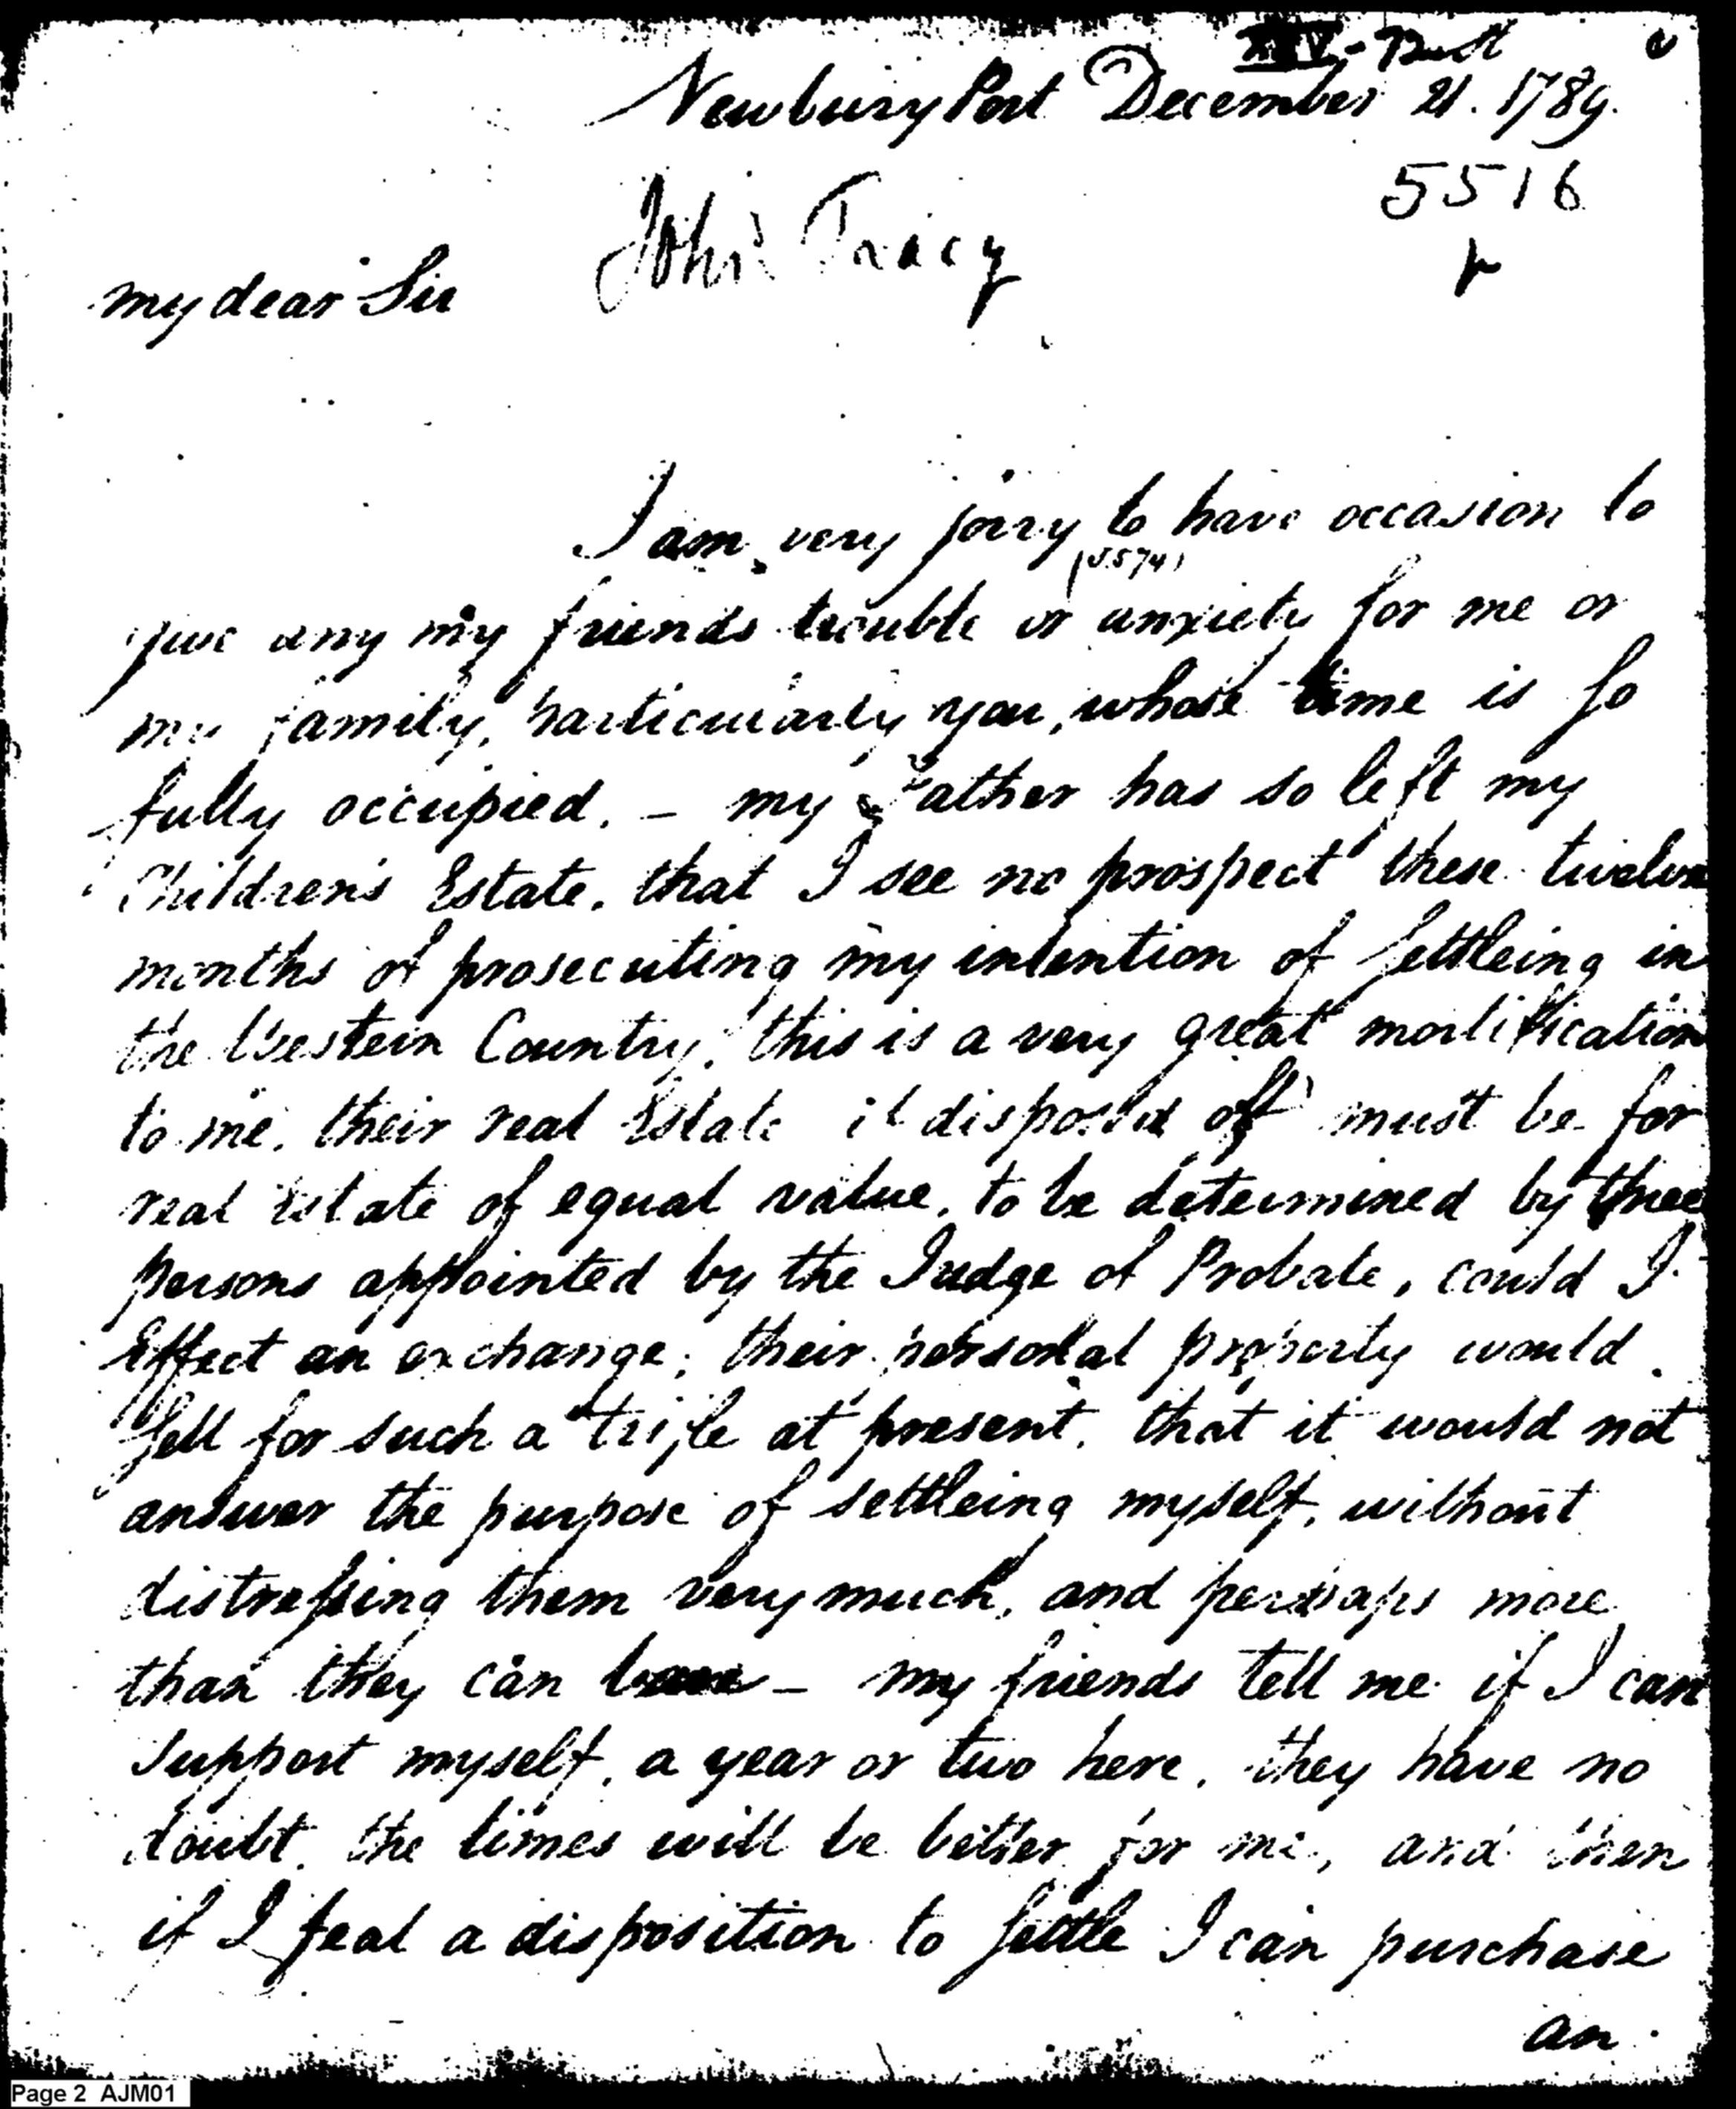 XXV - Butt
NewburyPort December 21. 1789.
5516
John Tracy
my dear Sir
I am very sorry to have occasion to
(5574)
give any my friends trouble or anxiety for me or
my family, particularly you, whose time is so
fully occupied. - my Father has so left my
Children's Estate. that I see no prospect these twelve
months of prosecuting my intention of settleing in
the Western Country. this is a very great mortification
to me. their real Estate if disposed off must be for
real Estate of equal value, to be determined by three
persons appointed by the Judge of Probate, could I
Effect an exchange; their personal property would
sell for such a trifle at present. that it would not
answer the purpose of settleing myself, without
distressing them very much, and perhaps more
than they can - my friends tell me if I can
support myself, a year or two here, they have no
doubt. the times will be better for me, and then
if I feal a disposition to settle I can purchase
an
Page 2 AJM01